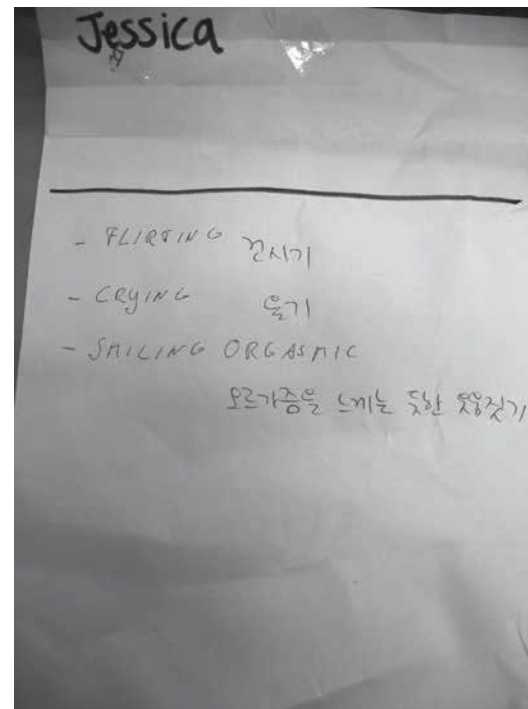 Jessica
- FLIRTING 껀시기
- CRYING 울기
- SMILING ORGASMIC
오르가즘을 느끼는 듯한 웃음짓기